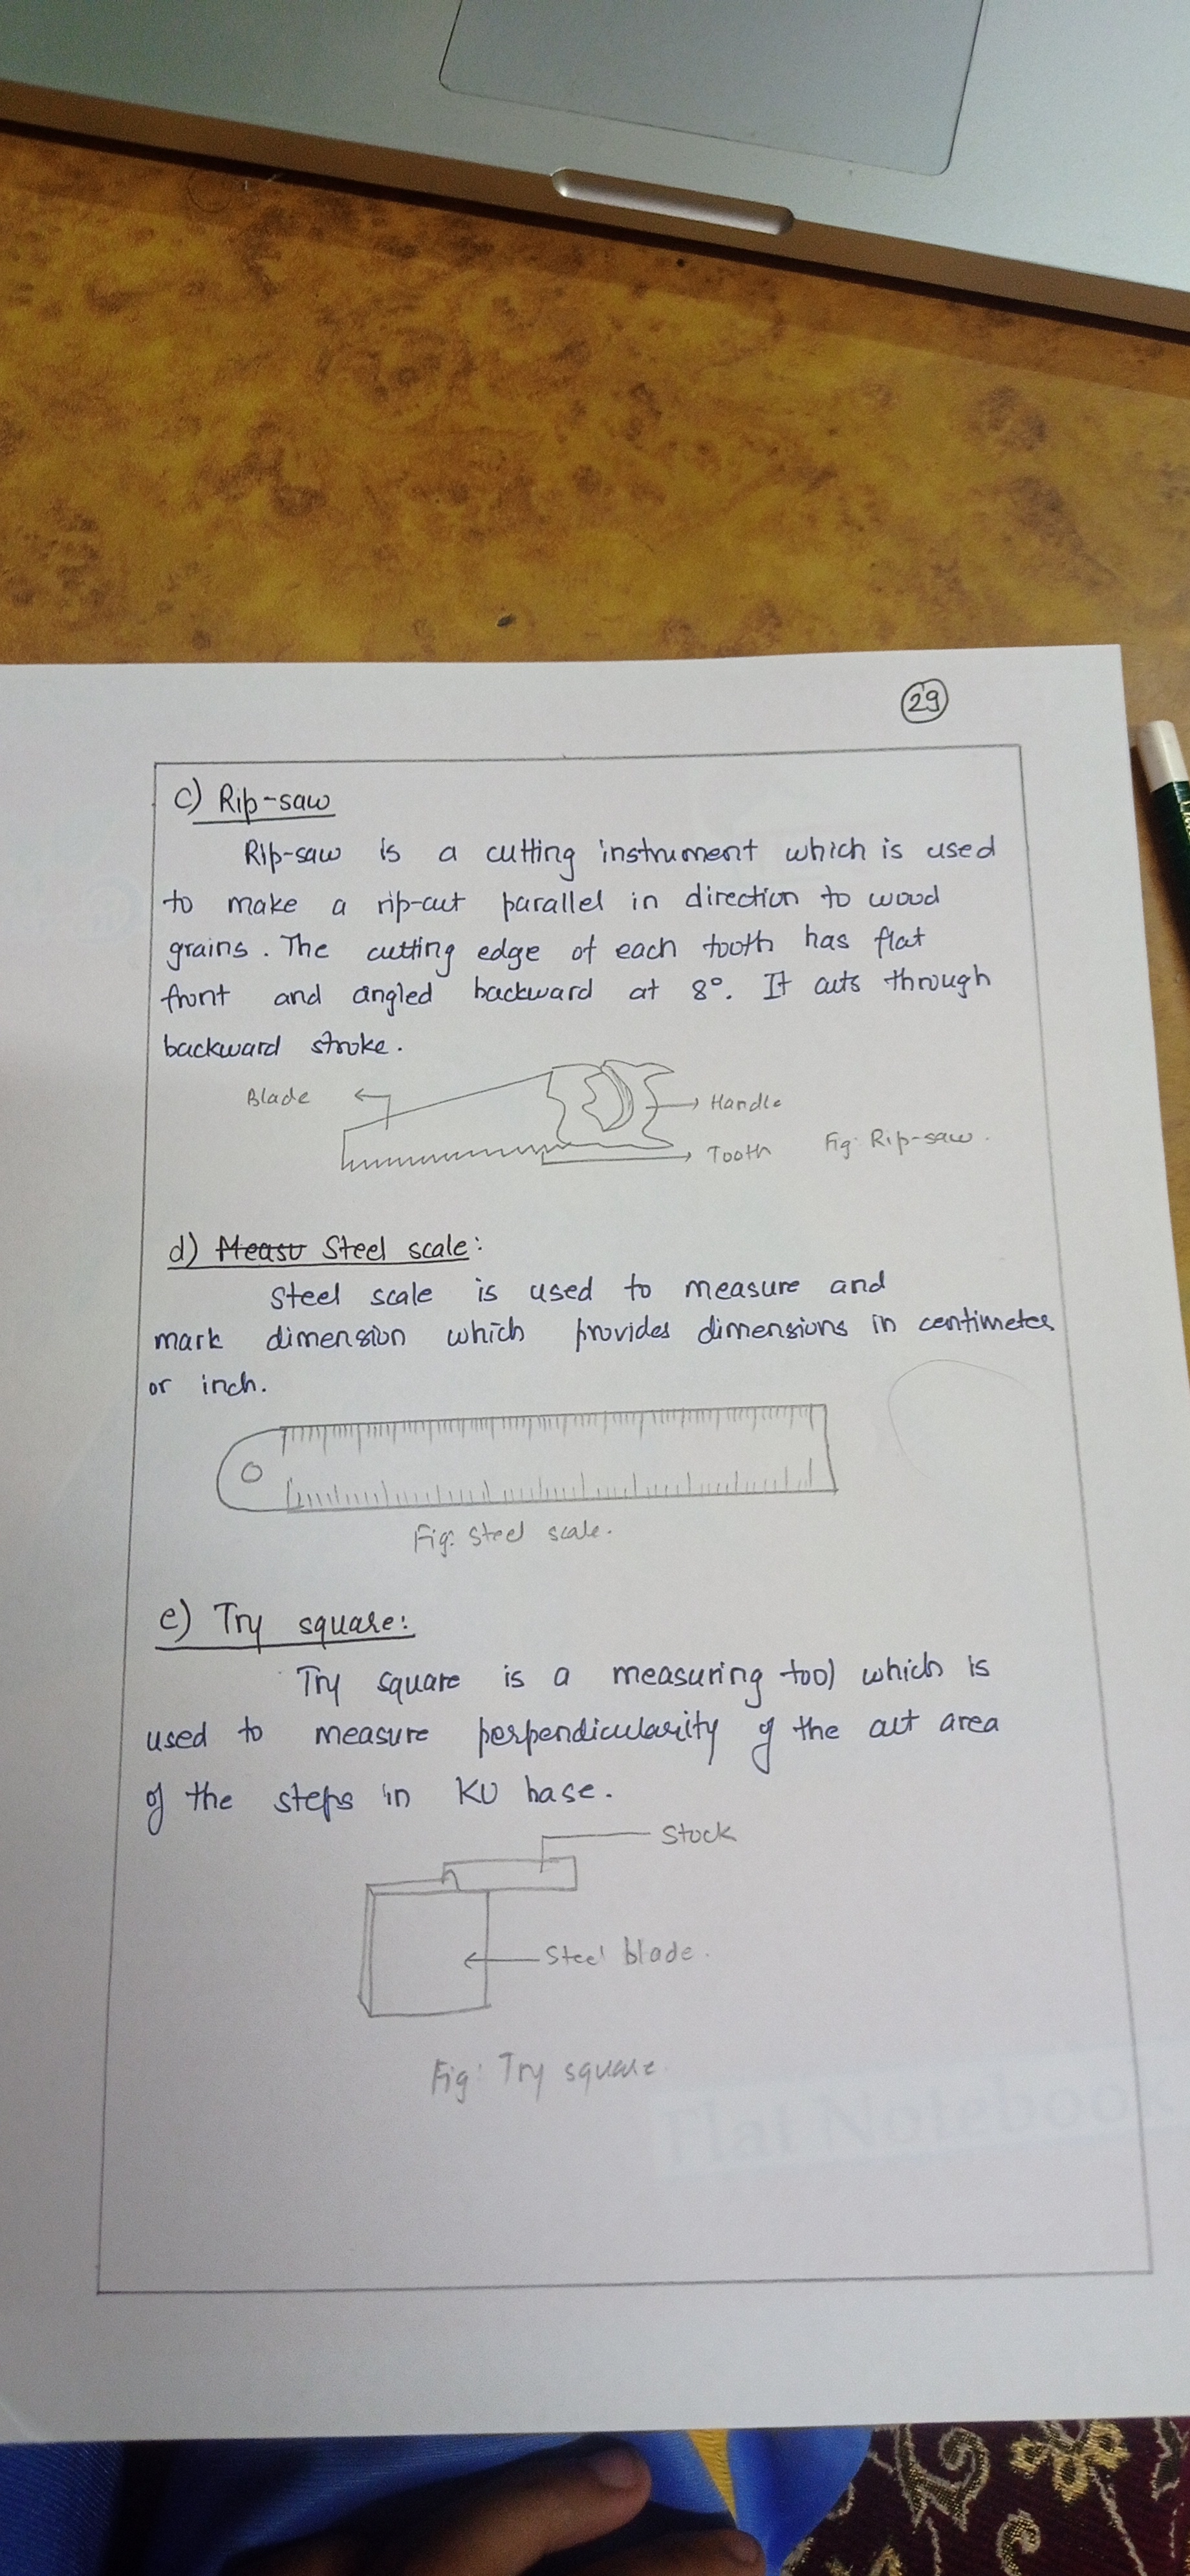 29
c) Rip-saw
Rip-saw is a cutting instrument which is used
to make a rip-cut parallel in direction to wood
grains. The cutting edge of each tooth has flat
front and angled backward at 8°. It cuts through
backward stroke.
Blade
Handle
Tooth
Fig: Rip-saw.
d) Measu Steel scale:
Steel scale is used to measure and
mark dimension which provides dimensions in centimeter
or inch.
Fig: Steel scale.
e) Try square:
Try square is a measuring tool which is
used to measure perpendicularity of the cut area
of the steps in KU base.
Stock
Steel blade.
Fig: Try square
Flat Notebook